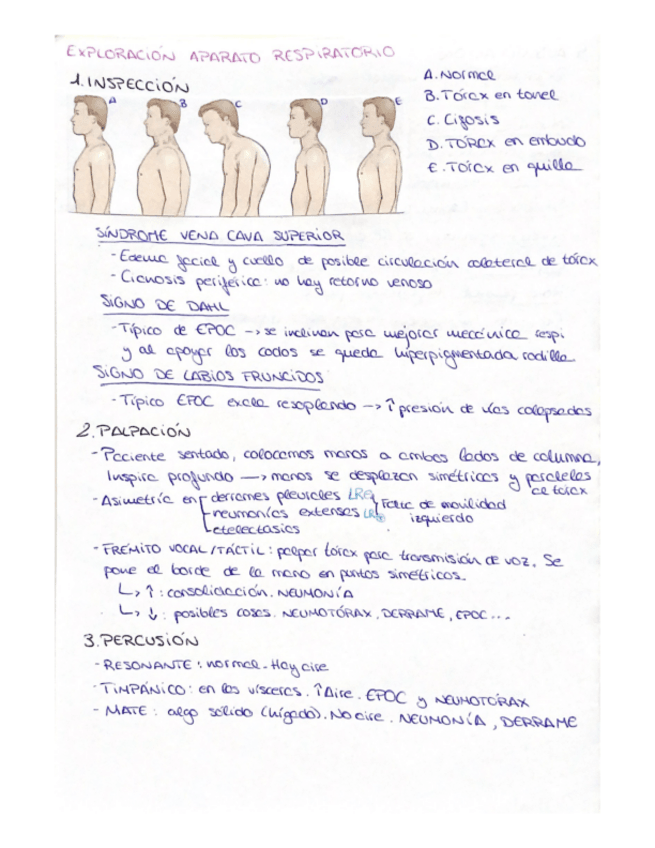 EXPLORACIÓN APARATO RESPIRATORIO
1. INSPECCIÓN
A B C D E
A. Normal
B. Tórax en tonel
C. Cifosis
D. TÓRAX en embudo
E. Tórax en quilla
SÍNDROME VENA CAVA SUPERIOR
- Edema facial y cuello de posible circulación colateral de tórax
- Cianosis periférica: no hay retorno venoso
SIGNO DE DAHL
- Típico de EPOC → se inclinan para mejorar mecánica respi
y al apoyar los codos se queda hiperpigmentada rodilla
SIGNO DE LABIOS FRUNCIDOS
- Típico EPOC exhala resoplando → ↑ presión de vías colapsadas
2. PALPACIÓN
- Paciente sentado, colocamos manos a ambos lados de columna,
Inspira profundo → manos se desplazan simétricas y paralelas
al tórax
- Asimetría en derrames pleurales
neumonías extensas
atelectasias
Falta de movilidad
izquierdo
- FRÉMITO VOCAL/TÁCTIL: palpar tórax para transmisión de voz. Se
pone el borde de la mano en puntos simétricos.
↳ ↑: consolidación. NEUMONÍA
↳ ↓: posibles cosas. NEUMOTÓRAX, DERRAME, EPOC...
3. PERCUSIÓN
- RESONANTE: normal. Hay aire
- TIMPÁNICO: en las vísceras. ↑Aire. EPOC y NEUMOTÓRAX
- MATE: algo sólido (hígado). No aire. NEUMONÍA, DERRAME